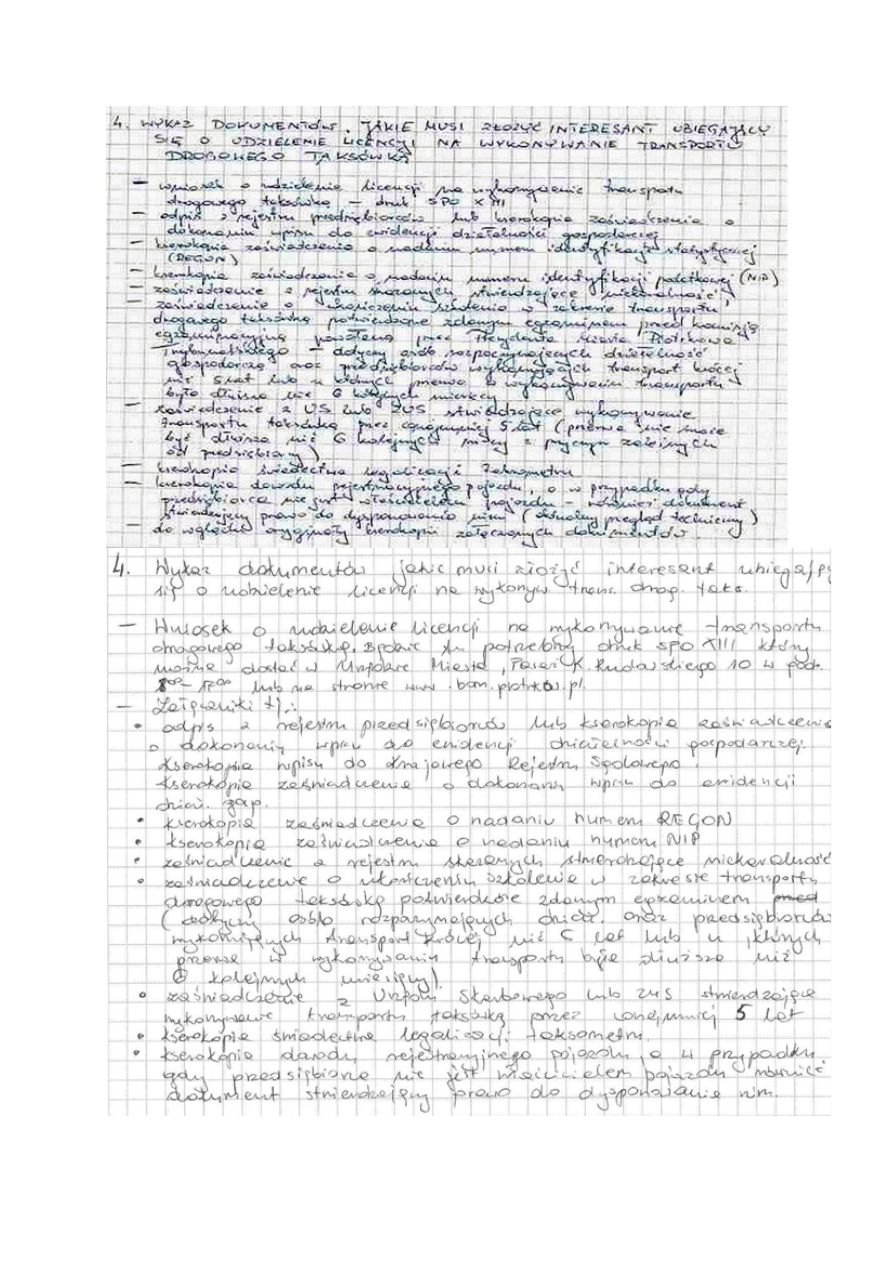 4. WYKAZ DOKUMENTÓW, JAKIE MUSI ZŁOŻYĆ INTERESANT UBIEGAJĄCY
SIĘ O UDZIELENIE LICENCJI NA WYKONYWANIE TRANSPORTU
DROGOWEGO TAKSÓWKĄ
— wniosek o udzielenie licencji na wykonywanie transportu
drogowego taksówką – druk SPO XIII
— odpis z rejestru przedsiębiorców lub kserokopia zaświadczenia o
dokonaniu wpisu do ewidencji działalności gospodarczej
— kserokopia zaświadczenia o nadaniu numeru identyfikacji statystycznej
(REGON)
— kserokopia zaświadczenia o nadaniu numeru identyfikacji podatkowej (NIP)
— zaświadczenie z rejestru skazanych stwierdzające niekaralność
— zaświadczenie o ukończeniu szkolenia w zakresie transportu
drogowego taksówką potwierdzone zdanym egzaminem przed komisją
egzaminacyjną powołaną przez Prezydenta Miasta Piotrkowa
Trybunalskiego – dotyczy osób rozpoczynających działalność
gospodarczą oraz przedsiębiorców wykonujących transport krócej
niż 5 lat lub u których przerwa w wykonywaniu transportu
była dłuższa niż 6 kolejnych miesięcy
— zaświadczenie z US lub ZUS stwierdzające wykonywanie
transportu taksówką przez co najmniej 5 lat (przerwa nie może
być dłuższa niż 6 kolejnych m-cy z przyczyn zależnych
od przedsiębiorcy)
— kserokopia świadectwa legalizacji taksometru
— kserokopia dowodu rejestracyjnego pojazdu, a w przypadku gdy
przedsiębiorca nie jest właścicielem pojazdu – również dokument
stwierdzający prawo do dysponowania nim (aktualny przegląd techniczny)
— do wglądu oryginały kserokopii załączonych dokumentów.
4. Wykaz dokumentów jakie musi złożyć interesant ubiegający
się o udzielenie licencji na wykonyw. trans. drog. taks.
— Wniosek o udzielenie licencji na wykonywanie transportu
drogowego taksówką. Będzie potrzebny druk SPO XIII który
można dostać w Urzędzie Miasta, Pasaż K. Rudowskiego 10 w godz.
8⁰⁰– 17⁰⁰ lub na stronie www.bom.piotrków.pl.
— Załączniki tj.:
• odpis z rejestru przedsiębiorców lub kserokopia zaświadczenia
o dokonaniu wpisu do ewidencji działalności gospodarczej.
Kserokopia wpisu do Krajowego Rejestru Sądowego.
Kserokopia zaświadczenia o dokonaniu wpisu do ewidencji
dział. gosp.
• kserokopia zaświadczenie o nadaniu numeru REGON
• kserokopia zaświadczenie o nadaniu numeru NIP
• zaświadczenie z rejestru skazanych stwierdzające niekaralność
• zaświadczenie o ukończeniu szkolenia w zakresie transportu
drogowego taksówką potwierdzone zdanym egzaminem przed
(dotyczy osób rozpoczynających dział. oraz przedsiębiorców
wykonujących transport krócej niż 5 lat lub u których
przerwa w wykonywaniu transportu była dłuższa niż
6 kolejnych miesięcy).
• zaświadczenie z Urzędu Skarbowego lub ZUS stwierdzające
wykonywanie transportu taksówką przez conajmniej 5 lat
• kserokopia świadectwa legalizacji taksometru.
• kserokopia dowodu rejestracyjnego pojazdu, a w przypadku
gdy przedsiębiorca nie jest właścicielem pojazdu również
dokument stwierdzający prawo do dysponowania nim.